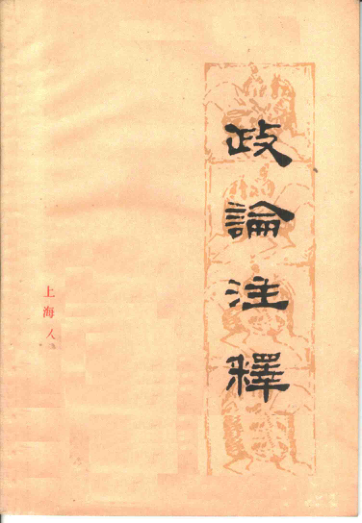 政論注釋
上海人